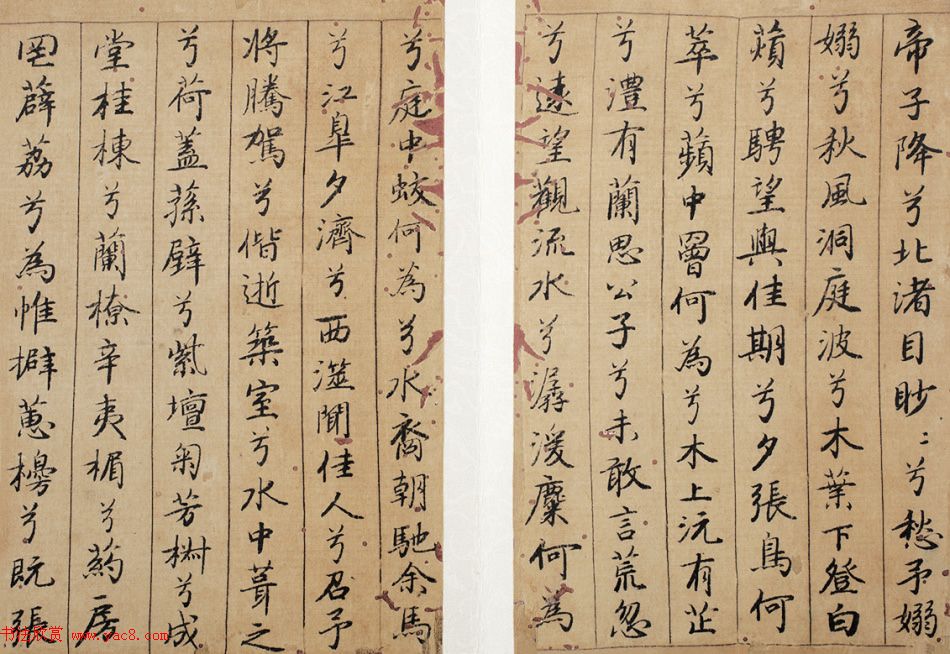 帝子降兮北渚目眇〻兮愁予嫋
嫋兮秋風洞庭波兮木葉下登白
薠兮騁望與佳期兮夕張鳥何
萃兮蘋中罾何為兮木上沅有芷
兮澧有蘭思公子兮未敢言荒忽
兮遠望觀流水兮潺湲麋何為
兮庭中蛟何為兮水裔朝馳余馬
兮江皐夕濟兮西澨聞佳人兮召予
將騰駕兮偕逝築室兮水中葺之
兮荷蓋蓀壁兮紫壇匊芳椒兮成
堂桂棟兮蘭橑辛夷楣兮葯房
罔薜荔兮為帷擗蕙櫋兮既張
书法欣赏 www.yac8.com